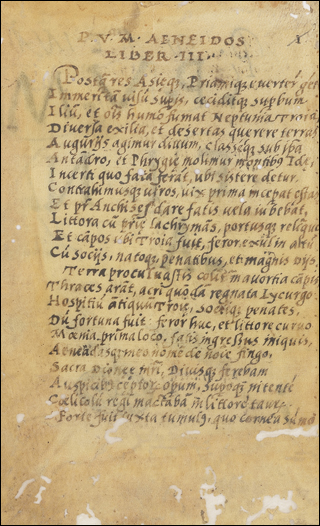 P. V. M. AENEIDOS
LIBER III
Postq̃ res Asieq;, Priamiq; evertere gẽt
Immeritã visũ supis, ceciditq; supbum
Iliũ, et oĩs humo fumat Neptunia Troia,
Diversa exilia, et desertas querere terras
Augurijs agimur divum, classẽq; sub ipsa
Antãdro, et Phrygie molimur mõtibo Ide,
Incerti quo fata ferãt, ubi sistere detur
Contrahimusq; viros, vix prima incepat estas
Et pr̃ Anchises dare fatis vela iubebat,
Littora cũ prie lachrymãs, portusq; relinquo
Et cãpos ubi Troia fuit, feror exul in altũ
Cũ socijs, natoq; penatibus, et magnis dijs,
Terra procul vastis colit mavortia cãpis
Thraces arãt, acri quõdã regnata Lycurgo
Hospitiũ ãtiquũ Troie, socijq; penates,
Dũ fortuna fuit: feror huc, et littore curvo
Moenia prima loco, fatis ingressus iniquis,
Aeneadasq; meo nomẽ de noĩe fingo,
Sacra Dionee mrĩ, Divusq; ferebam
Auspicibus ceptor opum, supoq; nitentẽ
Coelicolũ regi mactabã in littore taur
Forte fuit iuxta tumulq, quo cornea sũmo